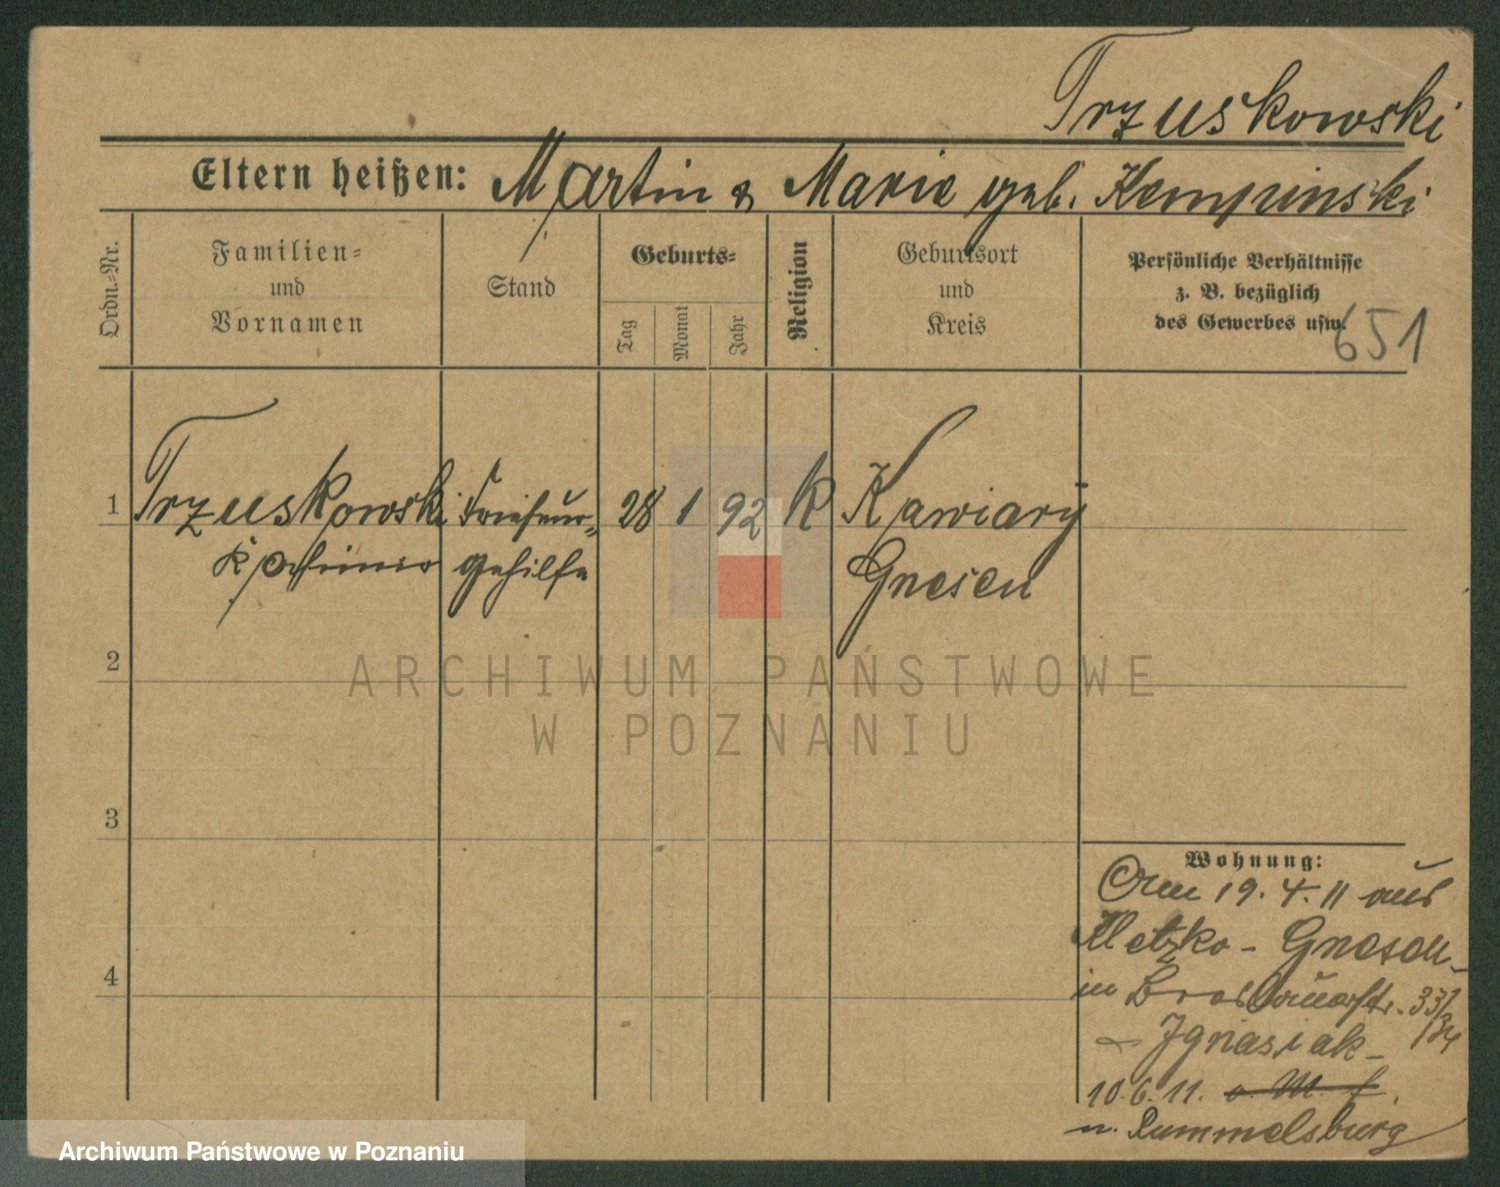 Trzuskowski
Eltern heißen: Martin & Marie geb. Kempinski
Ordn.-Nr.
Familien-
und
Vornamen
Stand
Geburts-
Tag
Monat
Jahr
Religion
Geburtsort
und
Kreis
Persönliche Verhältnisse
z. B. bezüglich
des Gewerbes usw.
651
1 Trzuskowski Friseur- 28 1 92 K Kawiary
Kasimir gehilfe Gnesen
2
3
4
Wohnung:
Am 19.4.11 aus
Kletzko - Gnesen
in 33/34
Ignasiak
10.6.11. o. M. f.
n. Rummelsburg
ARCHIWUM PAŃSTWOWE
W POZNANIU
Archiwum Państwowe w Poznaniu